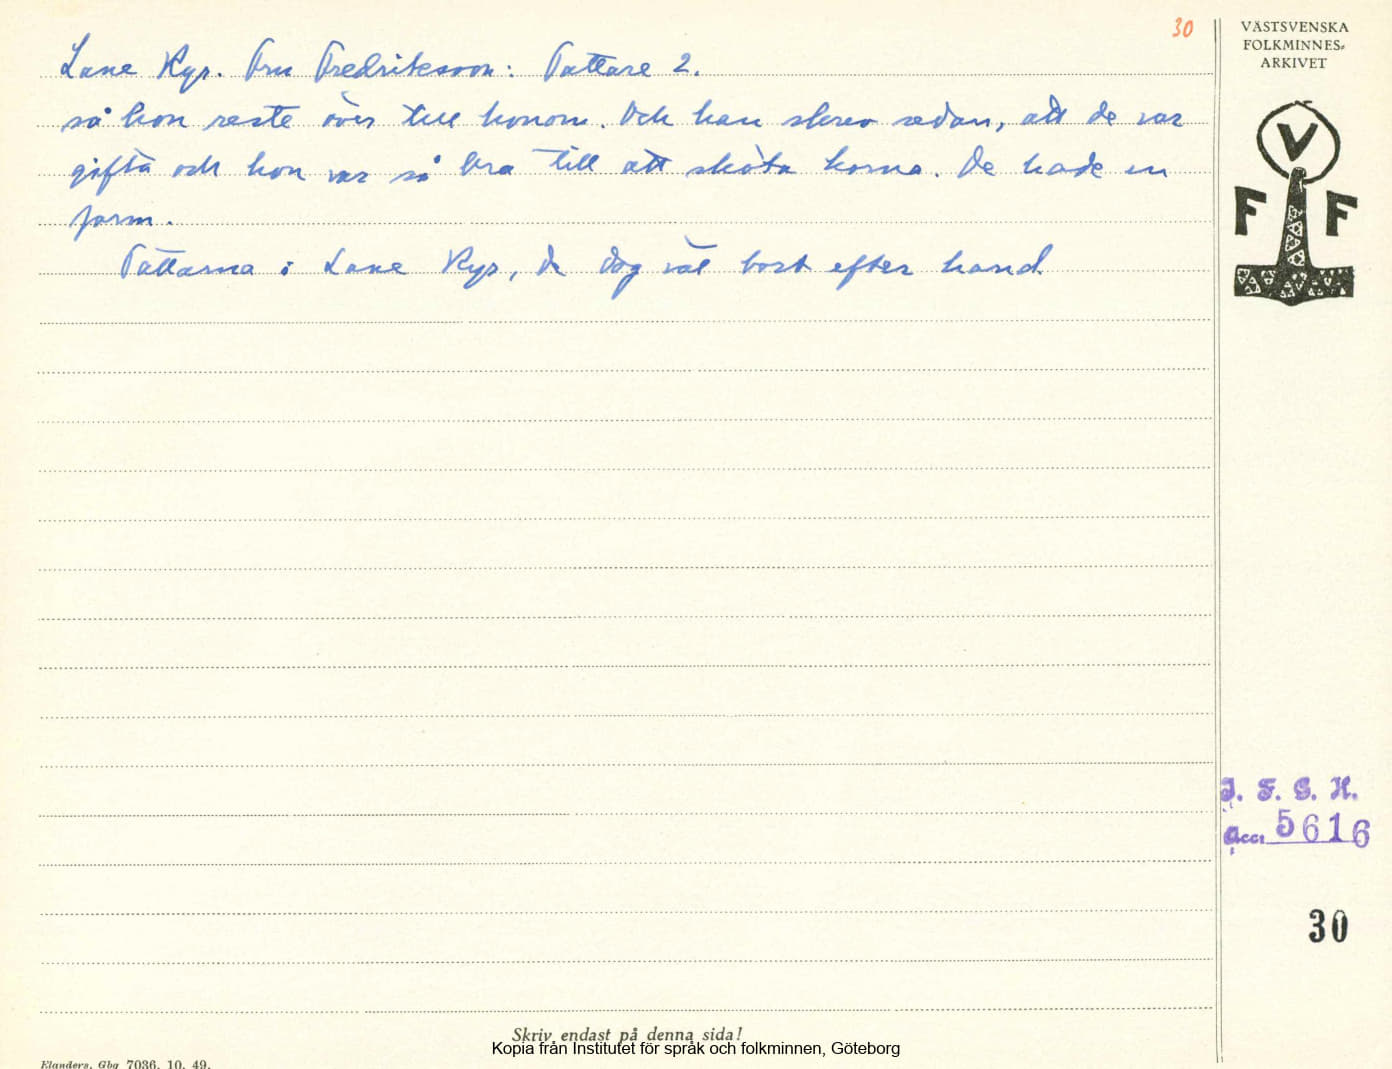 30
Lane Ryr. Fru Fredriksson: Tattare 2.
så hon reste över till honom. Och han skrev sedan, att de var
gifta och hon var så bra till att sköta korna. De hade en
farm.
Tattarna i Lane Ryr, de dog väl bort efter hand.
VÄSTSVENSKA
FOLKMINNES-
ARKIVET
V
F F
I. F. G. H.
acc. 5616
30
Skriv endast på denna sida!
Kopia från Institutet för språk och folkminnen, Göteborg
Elanders, Gbg 7036. 10. 49.